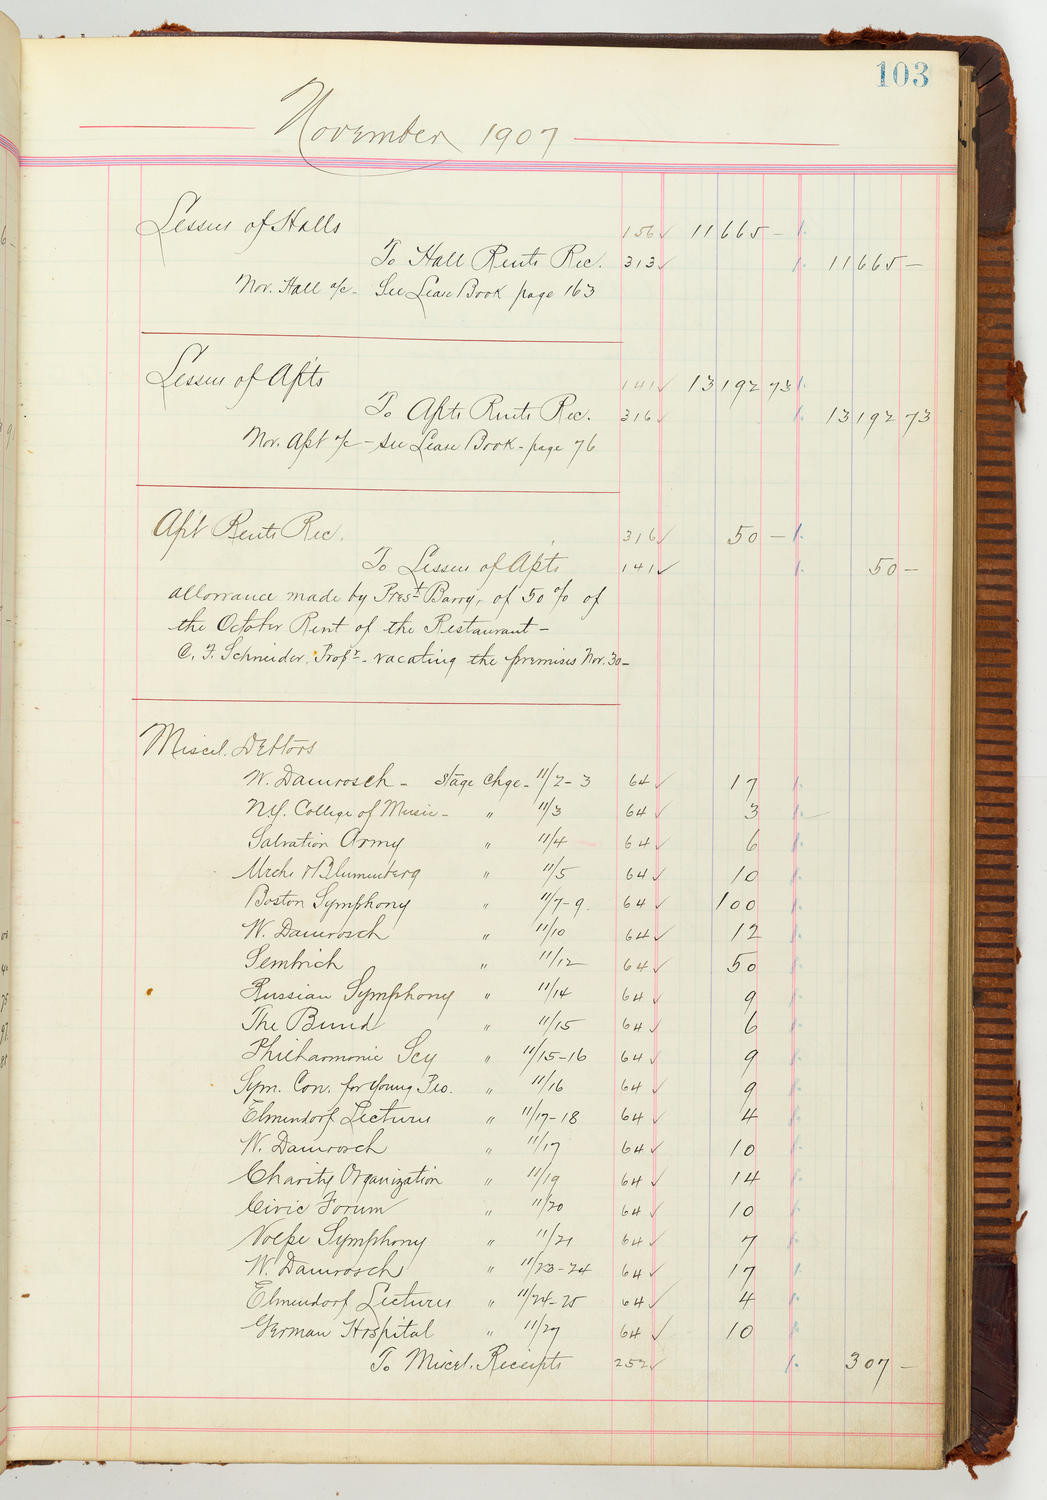 103
November 1907
Lessees of Halls 156 ✓ 11665 —
To Hall Rents Rec. 313 ✓ 11665 —
Nov. Hall a/c - See Lease Book page 163
Lessees of Apts 141 ✓ 13192 73
To Apts Rents Rec. 316 ✓ 13192 73
Nov. Apt a/c - see Lease Book - page 76
Apt Rents Rec. 316 ✓ 50 —
To Lessees of Apts 141 ✓ 50 —
allowance made by Prest Barry, of 50% of
the October Rent of the Restaurant -
C. F. Schneider, Propr - vacating the premises Nov. 30 -
Miscel. Debtors
W. Damrosch - Stage Chge - 11/2-3 64 ✓ 17
N.Y. College of Music - " 11/3 64 ✓ 3
Salvation Army " 11/4 64 ✓ 6
& Blumenberg " 11/5 64 ✓ 10
Boston Symphony " 11/7-9 64 ✓ 100
W. Damrosch " 11/10 64 ✓ 12
Sembrich " 11/12 64 ✓ 50
Russian Symphony " 11/14 64 ✓ 9
The Bund " 11/15 64 ✓ 6
Philharmonic Scy " 11/15-16 64 ✓ 9
Sym. Con. for Young Peo. " 11/16 64 ✓ 9
Elmendorf Lectures " 11/17-18 64 ✓ 4
W. Damrosch " 11/17 64 ✓ 10
Charity Organization " 11/19 64 ✓ 14
Civic Forum " 11/20 64 ✓ 10
Volpe Symphony " 11/21 64 ✓ 7
W. Damrosch " 11/23-24 64 ✓ 17
Elmendorf Lectures " 11/24-25 64 ✓ 4
German Hospital " 11/27 64 ✓ 10
To Miscel. Receipts 252 ✓ 307 —